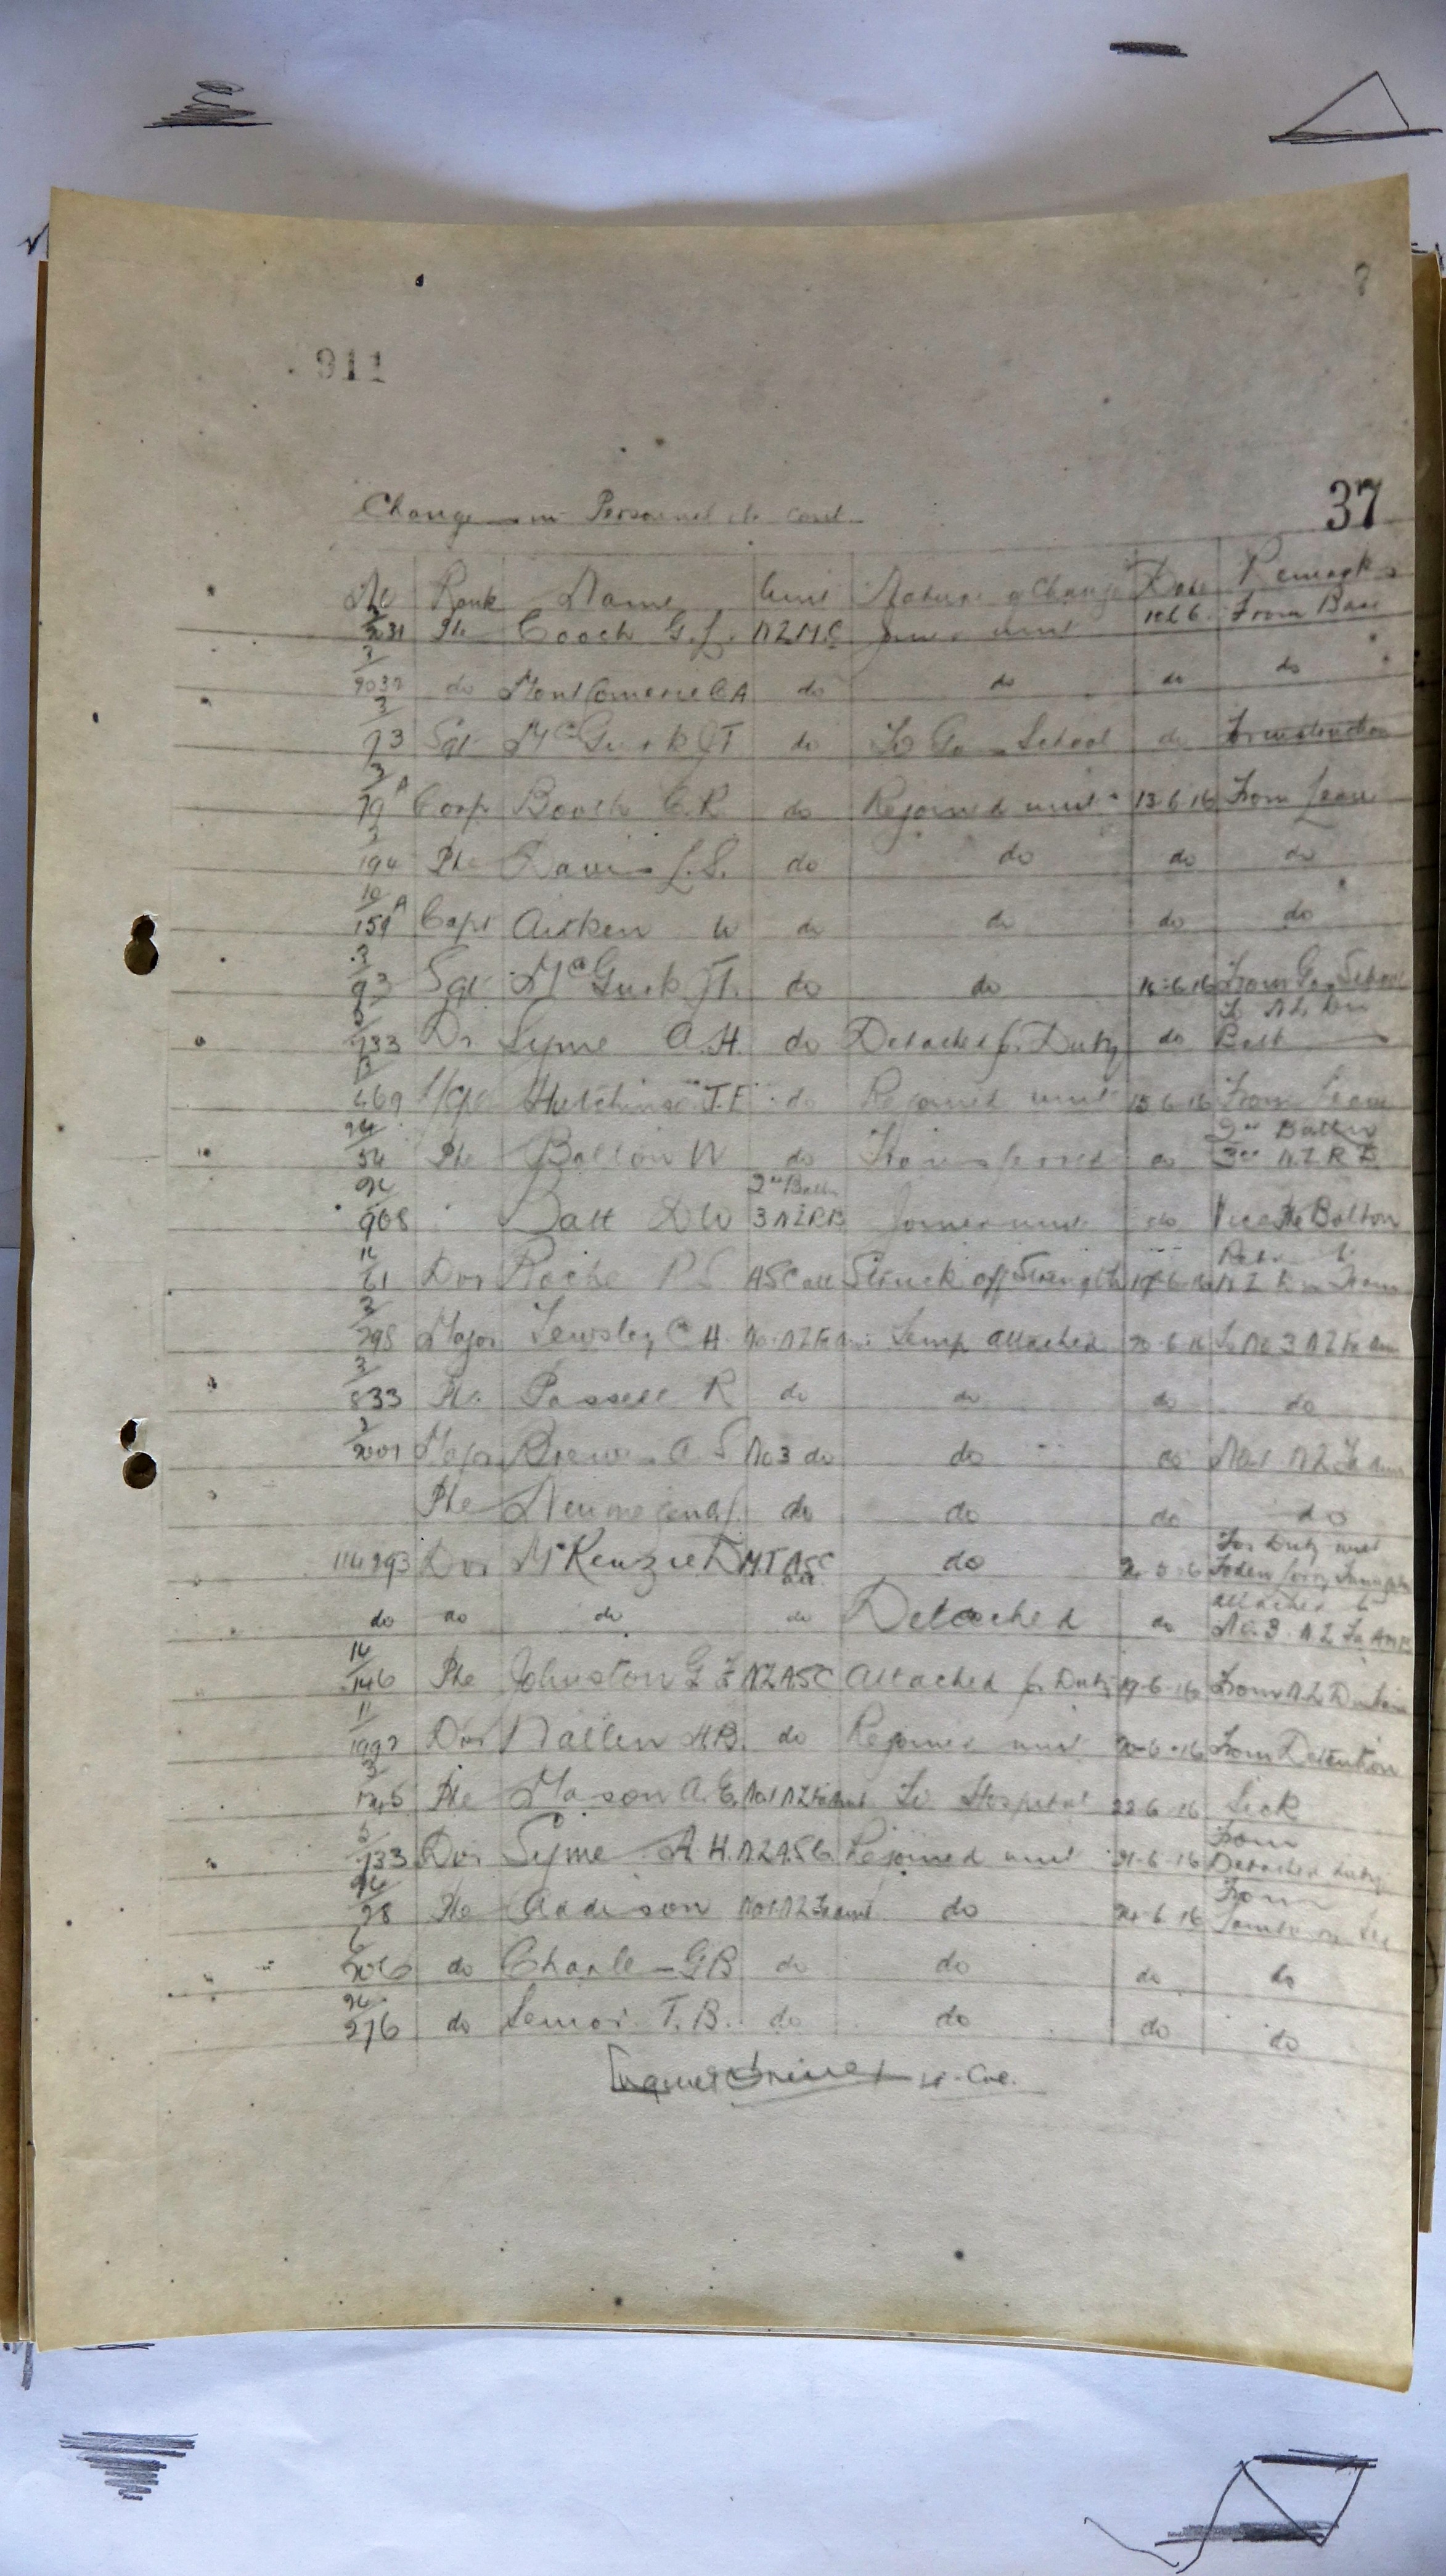 911
37
Changes in Personnel etc contd
No Rank Name Unit Nature of Change Date Remarks
3/231 Pte Cooch G.L. NZMC Joined unit From Base
3/ do Montgomerie C A do do do do
3/93 Sgt McGurk J T do To Gas School do For instruction
3/79A Corp Booth C. R do Rejoined unit 13-6-16 From Leave
3/194 Pte Davis L. S. do do do do
10/159A Capt Aitken W do do do do
3/93 Sgt McGurk J T. do do 14-6-16 From Gas School
5/733 Dr Syme A. H. do Detached for Duty do To N.Z. Div
Rest
L/Cpl Hutchinson J. F do Rejoined unit 15-6-16 From Leave
24/54 Pte Bolton W do Transferred do 2nd Battn
3rd N.Z.R.B
24/968 Batt D W 2nd Battn
3 NZRB Joined unit do Vice Pte Bolton
61 Dvr Roche P. S ASC att Struck off Strength 19-6-16
N Z Div Train
3/298 Major Tewsley C. H. No 1 NZ Fd Amb Temp attached 20-6-16 To No 3 NZ Fd Amb
3/833 Pte R do do do do
3/ Major Brewis A. S No 3 do do do No 1 N.Z. Fd Amb
Pte do do do do
Dvr McKenzie D M.T. ASC
att do For Duty with
do do do do Detached do attached to
No. 3. N.Z Fd Amb
146 Pte Johnston G F NZASC Attached for Duty 19-6-16 From N.Z. Div Train
11/ Dvr Nallen H B. do Rejoined unit 20-6-16 From Detention
3/ Pte Mason A. E. No 1 NZ Fd Amb To Hospital 22-6-16 Sick
5/733 Dvr Syme A. H. NZASC Rejoined unit 21-6-16 From
Detached duty
24/ Pte Addison No 1 NZ Fd Amb do 24-6-16 From
do Charles G B do do do do
24/276 do Senior T. B. do do do do
Lt-Col.